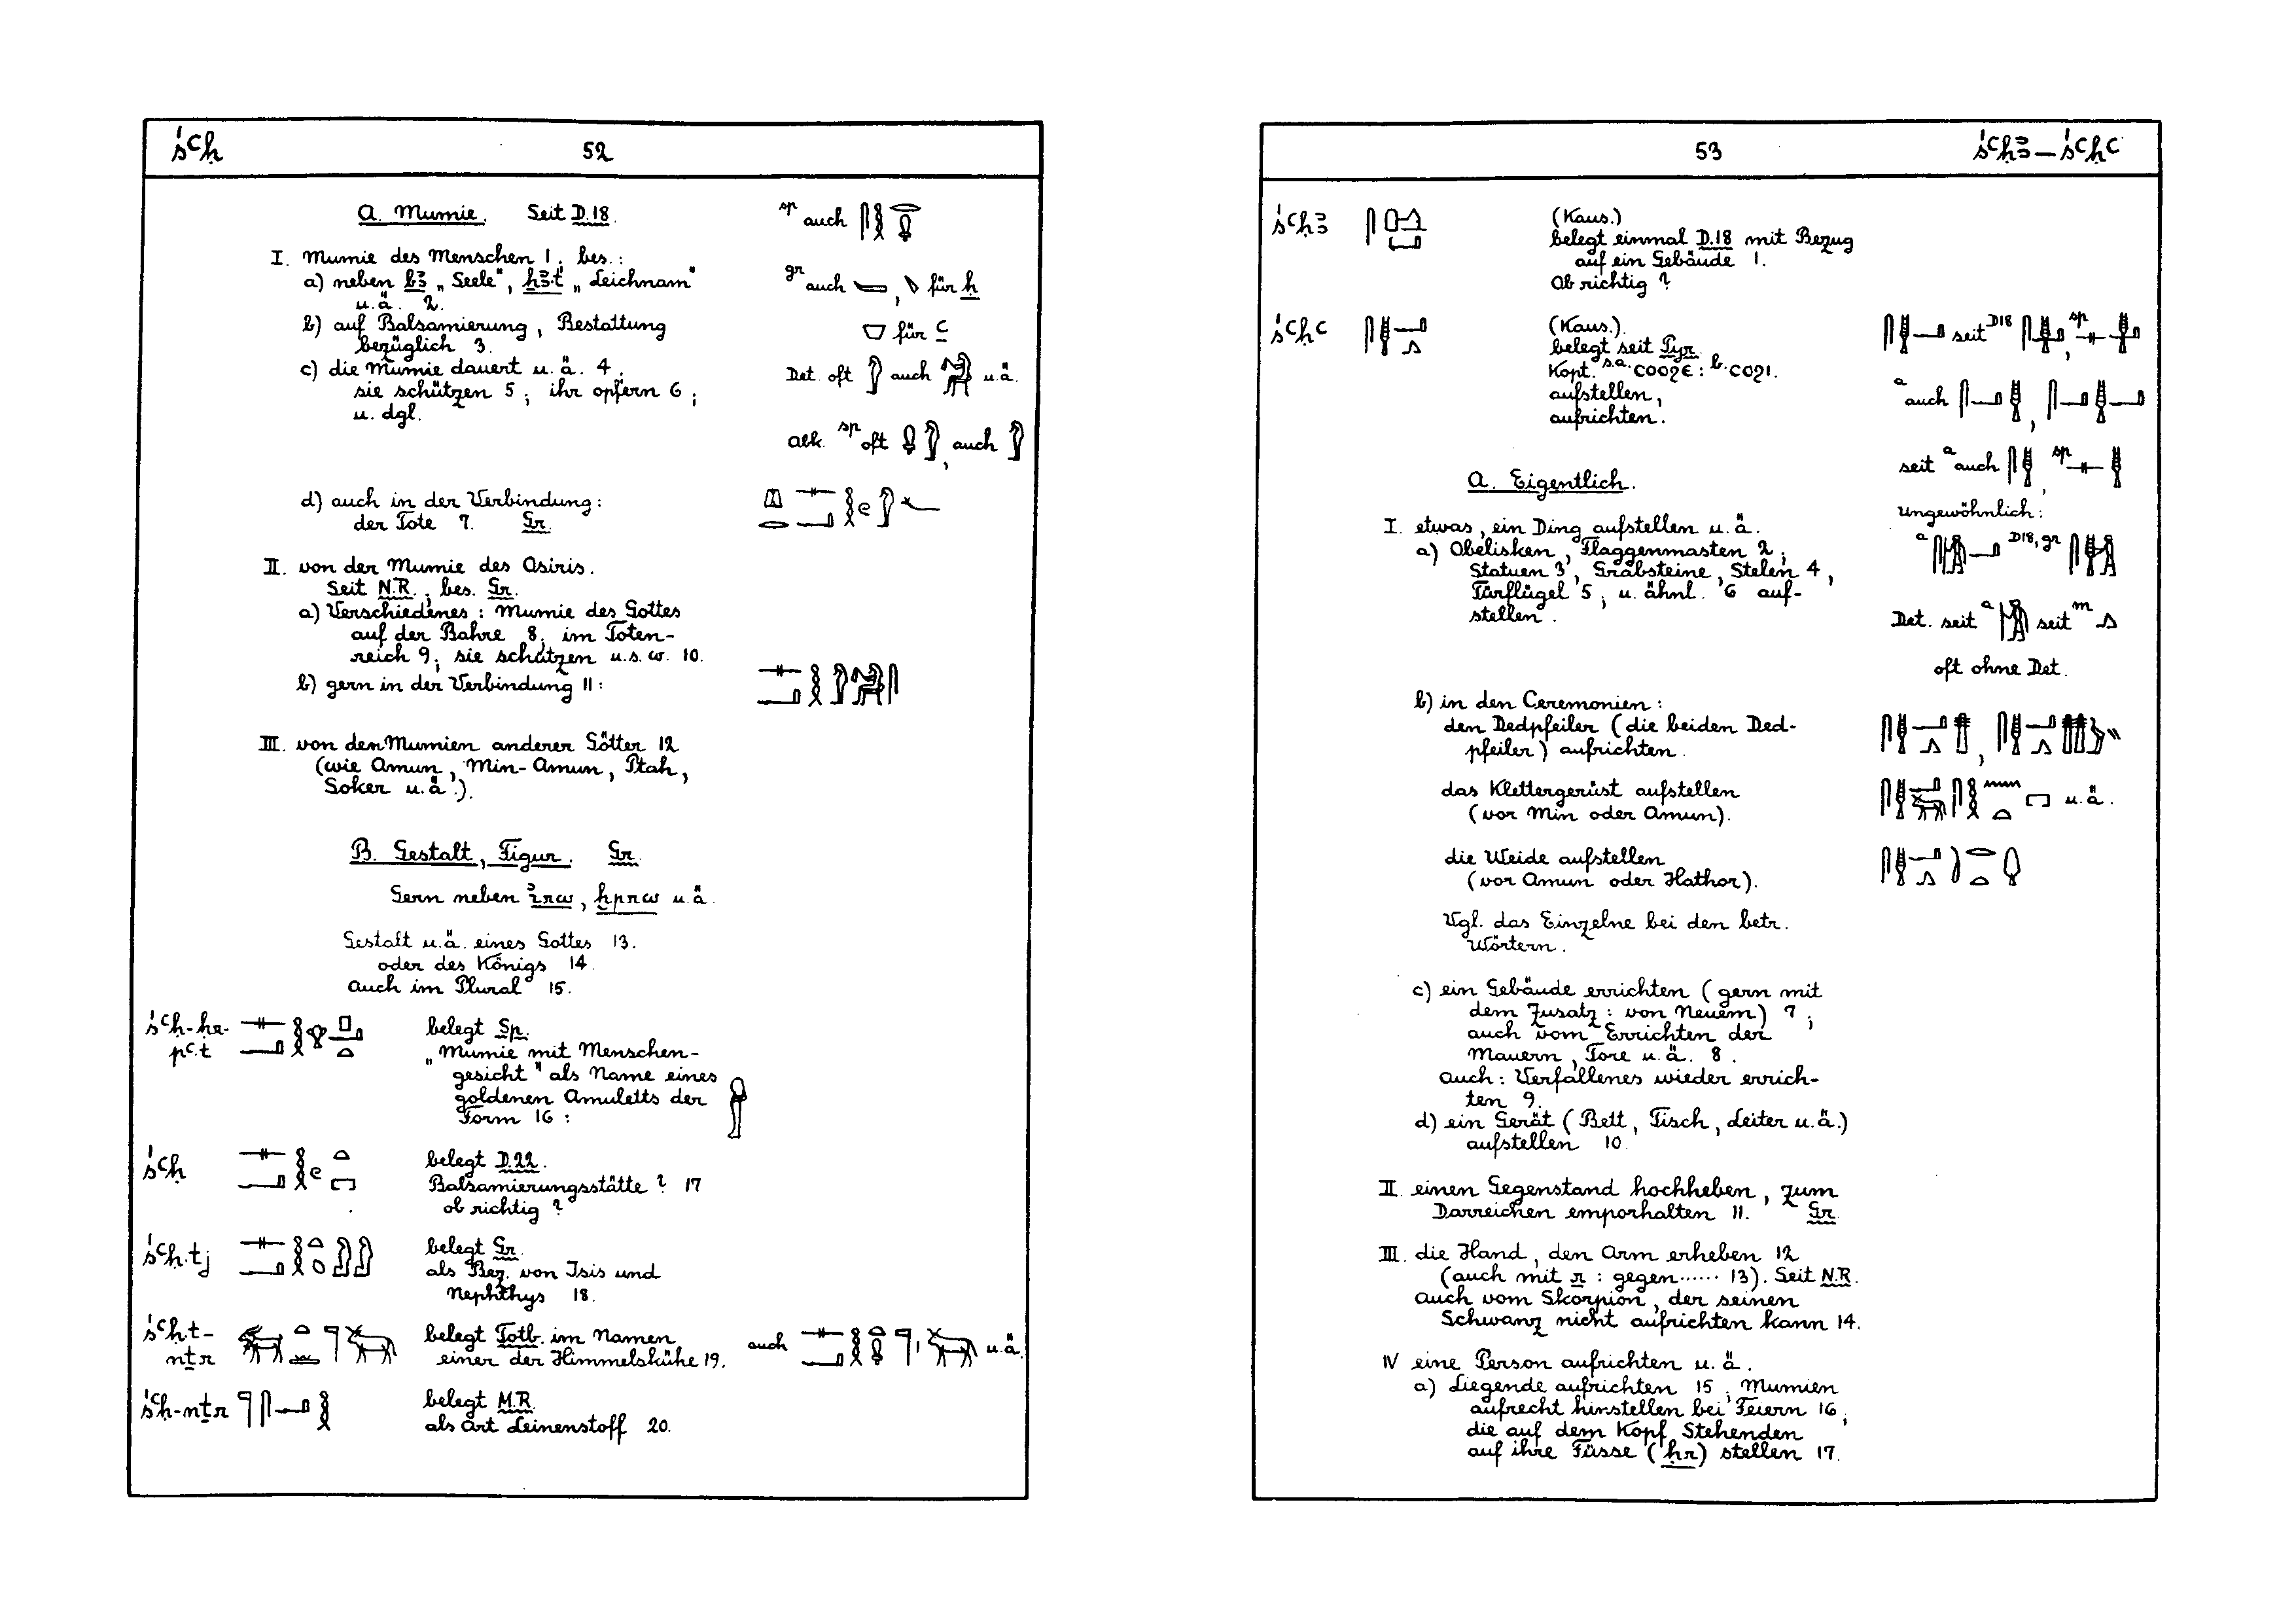 śꜥḥ 52
A. Mumie. Seit D.18.
sp auch
I. Mumie des Menschen 1. bes.:
a) neben bꜣ „Seele“, ẖꜣ·t „Leichnam“
u.ä. 2.
gr auch , für ḥ
b) auf Balsamierung, Bestattung
bezüglich 3.
für ꜥ
c) die Mumie dauert u.ä. 4,
sie schützen 5; ihr opfern 6;
u. dgl.
Det. oft auch u.ä.
Abk. sp oft , auch
d) auch in der Verbindung:
der Tote 7. Gr.
II. von der Mumie des Osiris.
Seit N.R., bes. Gr.
a) Verschiedenes: Mumie des Gottes
auf der Bahre 8; im Toten-
reich 9; sie schützen u.s.w. 10.
b) gern in der Verbindung 11:
III. von den Mumien anderer Götter 12
(wie Amun, Min-Amun, Ptah,
Soker u.ä.).
B. Gestalt, Figur. Gr.
Gern neben ı͗rw, ḫprw u.ä.
Gestalt u.ä. eines Gottes 13.
oder des Königs 14.
Auch im Plural 15.
śꜥḥ-ḥr-
pꜥ·t
belegt Sp.
„Mumie mit Menschen-
gesicht“ als Name eines
goldenen Amuletts der
Form 16:
śꜥḥ belegt D.22.
Balsamierungsstätte? 17
ob richtig?
śꜥḥ·tj belegt Gr.
als Bez. von Isis und
Nephthys 18.
śꜥḥ·t-
nṯr
belegt Totb. im Namen
einer der Himmelskühe 19. auch u.ä.
śꜥḥ-nṯr belegt M.R.
als Art Leinenstoff 20.
53 śꜥḥꜣ — śꜥḥꜥ
śꜥḥꜣ (Kaus.)
belegt einmal D.18 mit Bezug
auf ein Gebäude 1.
Ob richtig?
śꜥḥꜥ (Kaus.).
belegt seit Pyr.
Kopt. s.a. ⲥⲟⲟϩⲉ: b. ⲥⲟϩⲓ.
aufstellen,
aufrichten.
seit D18 , sp
a auch ,
seit a auch , sp
ungewöhnlich:
a D18, gr
Det. seit a seit m
oft ohne Det.
A. Eigentlich.
I. etwas, ein Ding aufstellen u.ä.
a) Obelisken, Flaggenmasten 2;
Statuen 3, Grabsteine, Stelen 4,
Türflügel 5; u. ähnl. 6 auf-
stellen.
b) in den Ceremonien:
den Dedpfeiler (die beiden Ded-
pfeiler) aufrichten.
das Klettergerüst aufstellen
(vor Min oder Amun).
u.ä.
die Weide aufstellen
(vor Amun oder Hathor).
Vgl. das Einzelne bei den betr.
Wörtern.
c) ein Gebäude errichten (gern mit
dem Zusatz: von Neuem) 7;
auch vom Errichten der
Mauern, Tore u.ä. 8.
auch: Verfallenes wieder errich-
ten 9.
d) ein Gerät (Bett, Tisch, Leiter u.ä.)
aufstellen 10.
II. einen Gegenstand hochheben, zum
Darreichen emporhalten 11. Gr.
III. die Hand, den Arm erheben 12
(auch mit r: gegen...... 13). Seit N.R.
auch vom Skorpion, der seinen
Schwanz nicht aufrichten kann 14.
IV eine Person aufrichten u.ä.
a) Liegende aufrichten 15; Mumien
aufrecht hinstellen bei Feiern 16;
die auf dem Kopf Stehenden
auf ihre Füsse (ḥr) stellen 17.